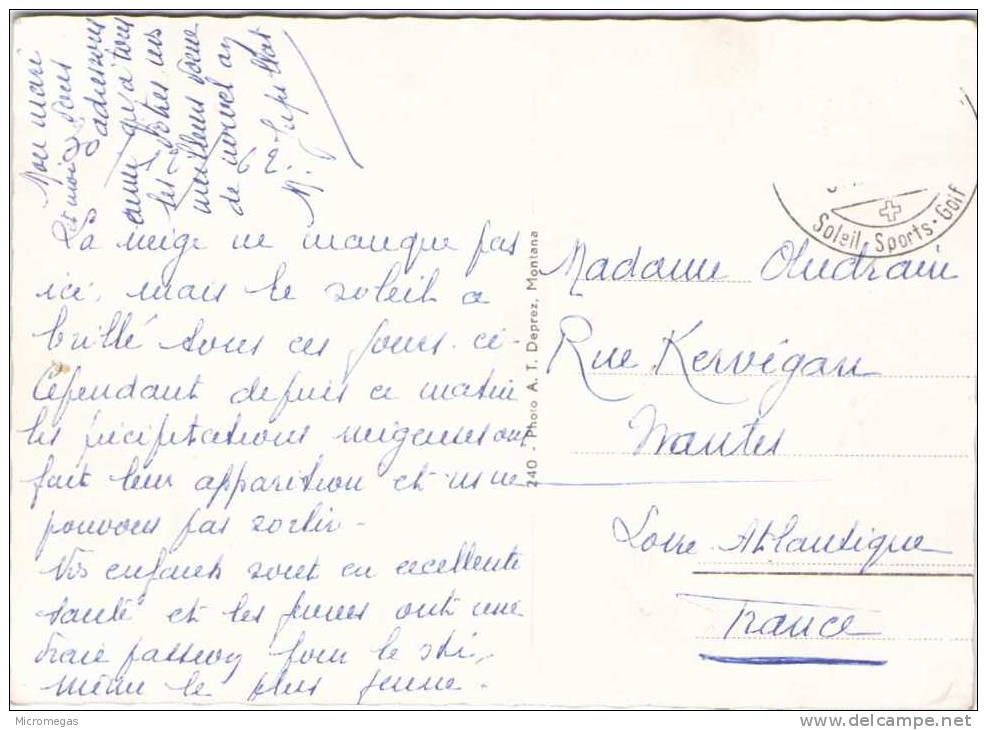 La neige ne manque pas
ici, mais le soleil a
brillé tous ces jours-ci-
Cependant depuis ce matin
les précipitations neigeuses ont
fait leur apparition et ns ne
pouvons pas sortir-
Vos enfants sont en excellente
santé et les jeunes ont une
vraie passion pour le ski,
même le plus jeune-
Mon mari
et moi vous
adressons
ainsi qu'à tous
les vôtres nos
meilleurs vœux
de nouvel an
62.
M.
240 - Photo A. T. Deprez, Montana
Soleil. Sports. Golf
Madame
Rue Kervégan
Nantes
Loire Atlantique
France
Micromegas
www.delcampe.net